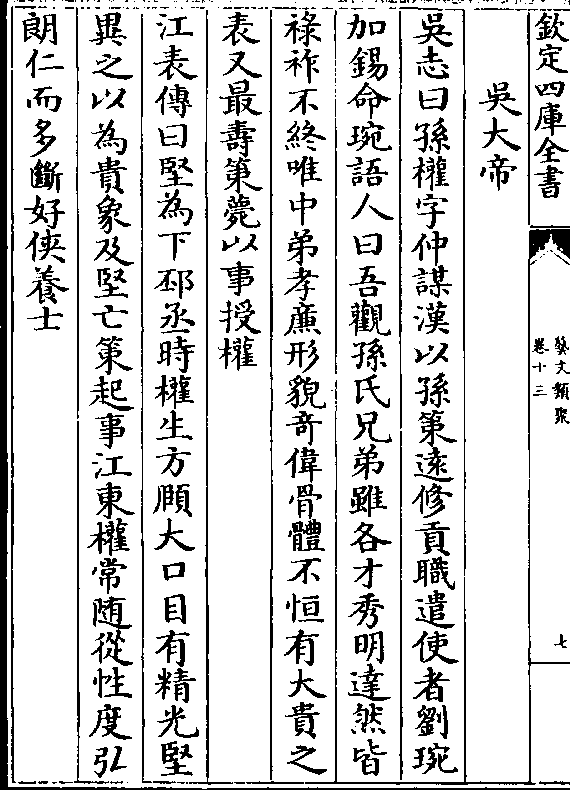 欽定四庫全書
藝文類聚
卷十三
七
吳大帝
吳志曰孫權字仲謀漢以孫策遠修貢職遣使者劉琬
加錫命琬語人曰吾觀孫氏兄弟雖各才秀明達然皆
祿祚不終唯中弟孝廉形貌奇偉骨體不恒有大貴之
表又最壽策薨以事授權
江表傳曰堅為下邳丞時權生方頤大口目有精光堅
異之以為貴象及堅亡策起事江東權常随從性度弘
朗仁而多斷好俠養士